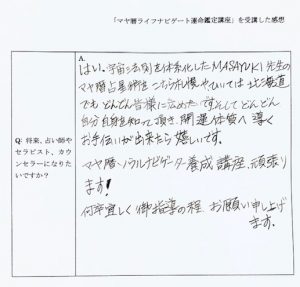 「マヤ暦ライフナビゲート運命鑑定講座」を受講した感想
Q: 将来、占い師や
セラピスト、カウ
ンセラーになりた
いですか?
A.
はい。宇宙の法則を体系化したMASAYUKI先生の
マヤ暦占星術をこちら札幌やひいては北海道
でもどんどん皆様に広めたいですそしてどんどん
自分自身を知って頂き、開運体質へ導く
お手伝いが出来たら嬉しいです。
マヤ暦ソウルナビゲーター養成講座、頑張り
ます!
何卒宜しく御指導の程、お願い申し上げ
ます。